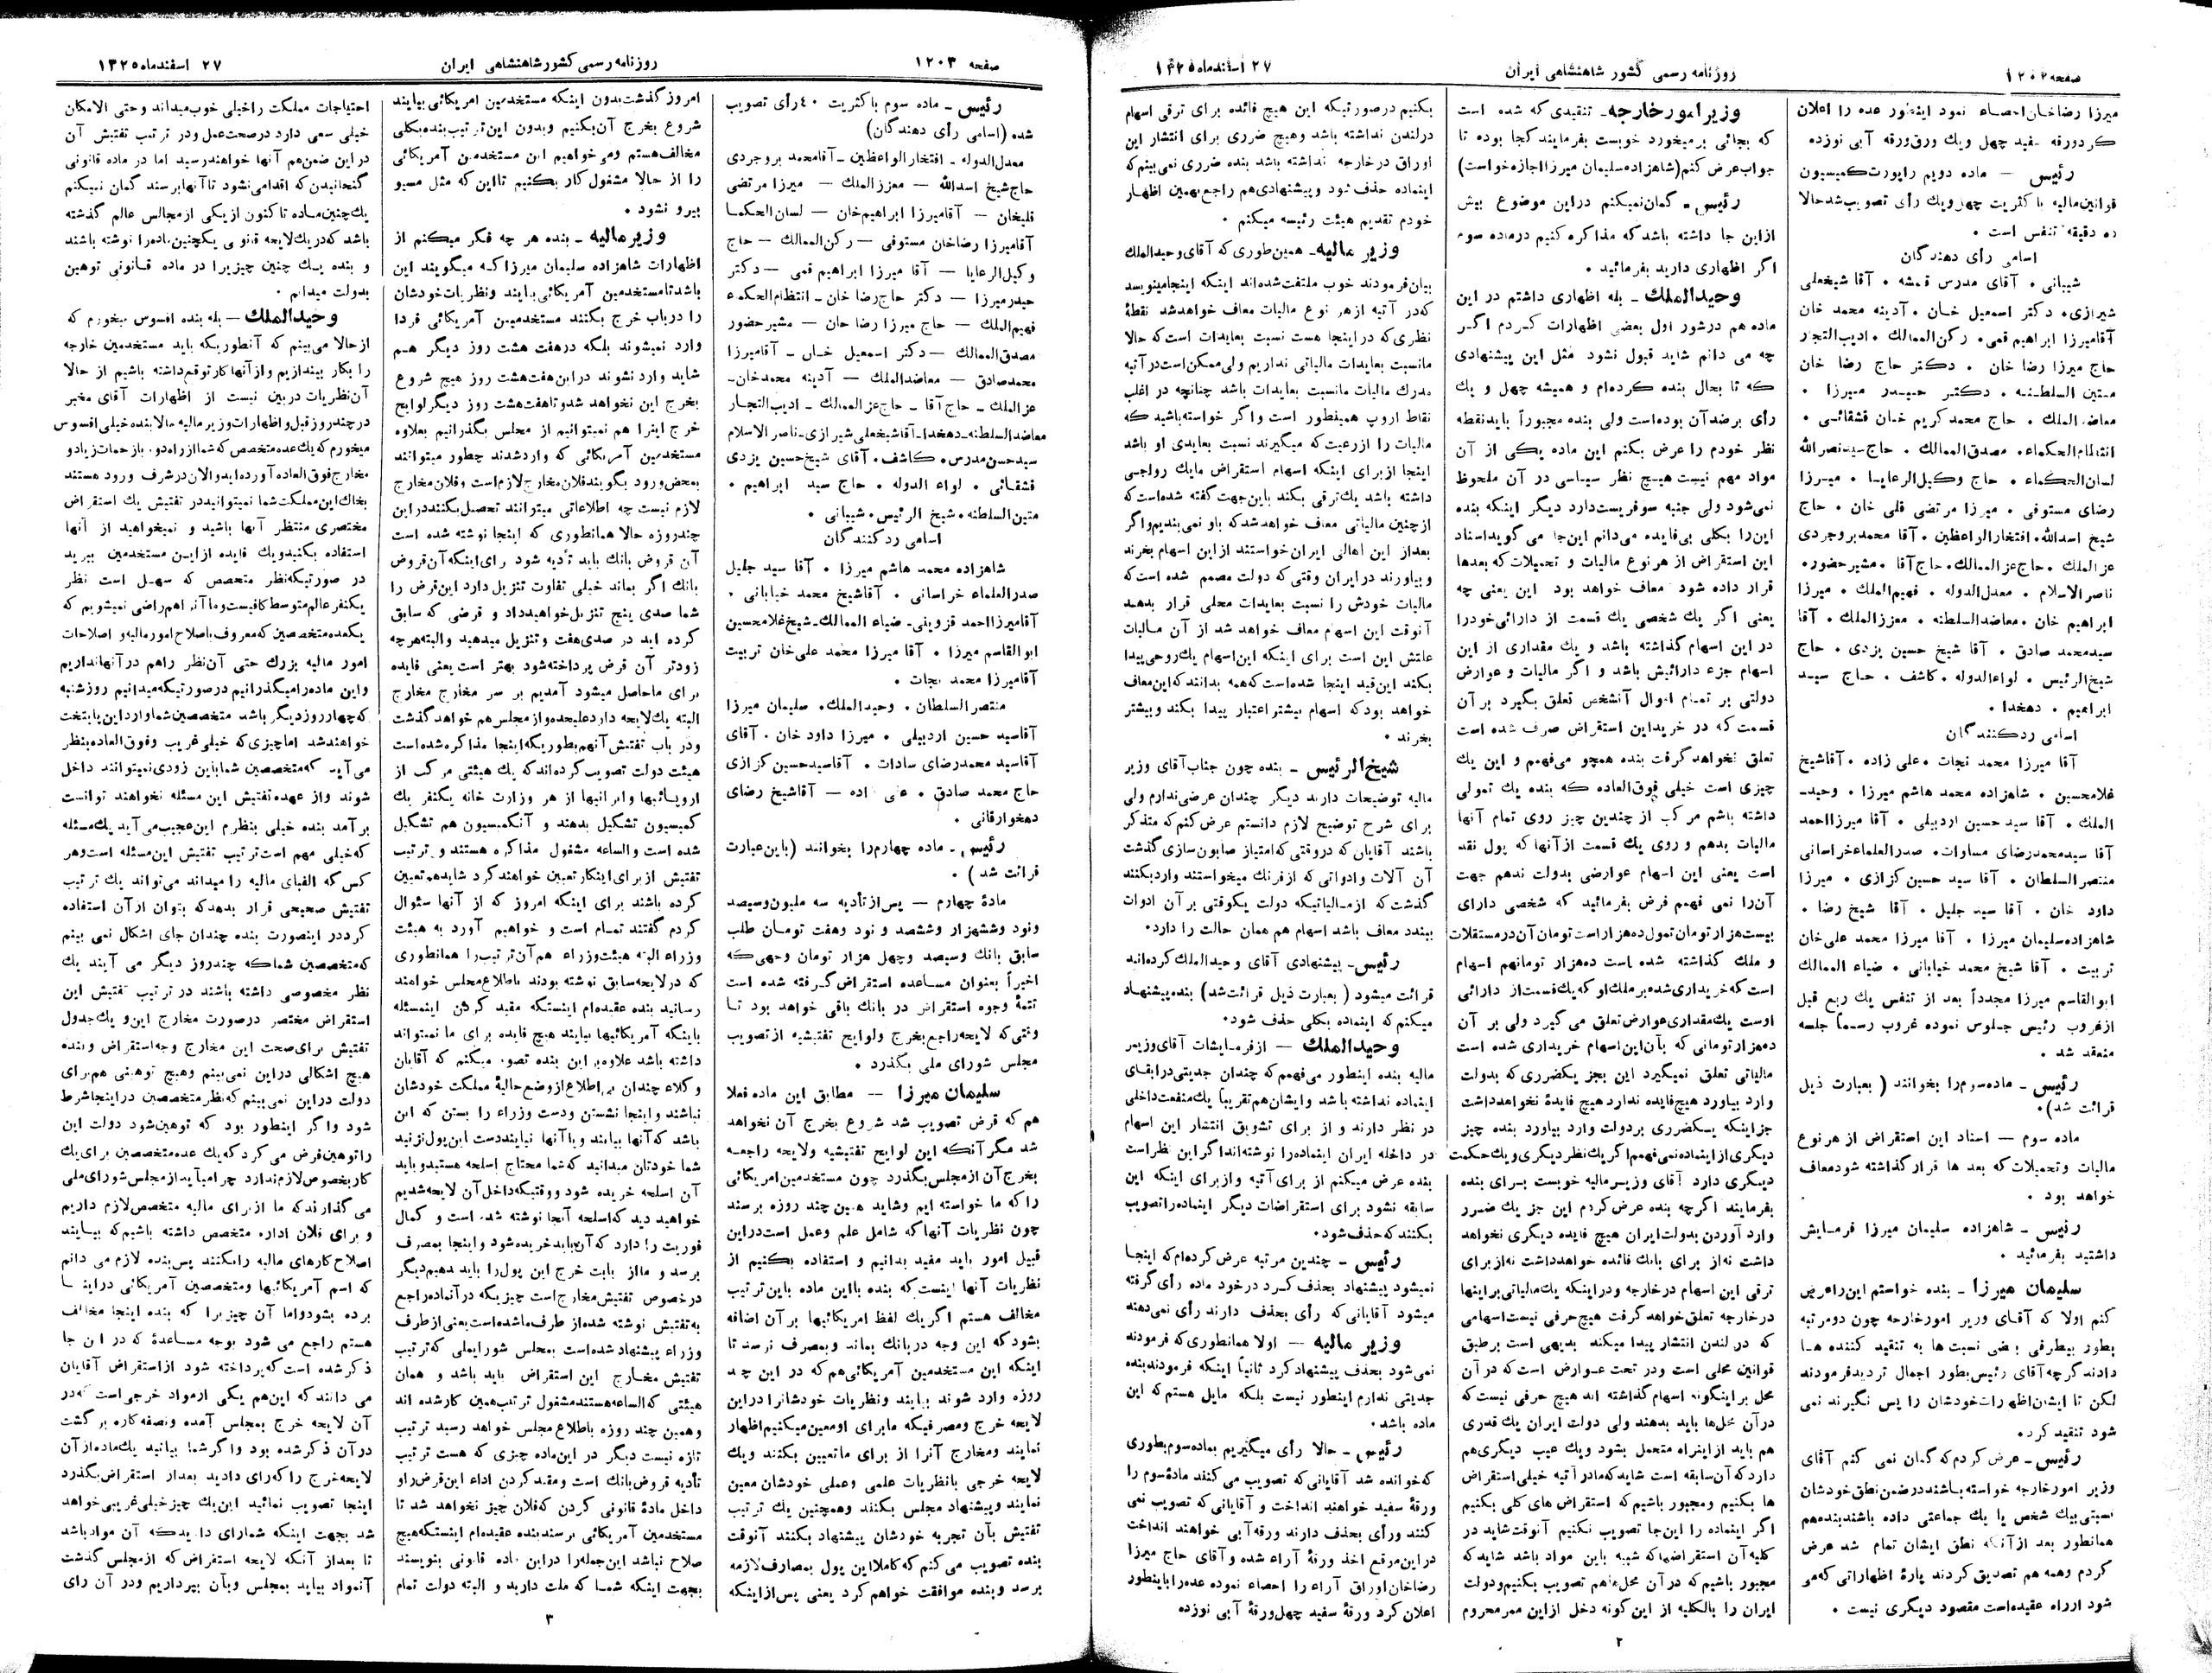 صفحه ۱۲۰۲
روزنامه رسمی کشور شاهنشاهی ایران
۲۷ اسفندماه ۱۳۲۵
میرزا رضاخان احصاء نمود اینطور عده را اعلان
کرد ورقه سفید چهل ویك ورق ورقه آبی نوزده
رئیس — ماده دویم راپورت کمیسیون
قوانین مالیه باکثریت چهل ویك رأی تصویب شد حالا
ده دقیقه تنفس است .
اسامی رأی دهندگان
شیبانی . آقای مدرس قمشه . آقا شیخعلی
شیرازی . دکتر اسمعیل خان . آدینه محمد خان
آقامیرزا ابراهیم قمی . رکن الممالك . ادیب التجار
حاج میرزا رضا خان . دکتر حاج رضا خان
متین السلطنه . دکتر حیدر میرزا .
معاضد الملك . حاج محمد کریم خان قشقائی .
انتظام الحکماء . مصدق الممالك . حاج سید نصرالله
لسان الحکماء . حاج وکیل الرعایا . میرزا
رضای مستوفی . میرزا مرتضی قلی خان . حاج
شیخ اسدالله . افتخار الواعظین . آقا محمد بروجردی
عزالملك . حاج عزالممالك . حاج آقا . مشیر حضور .
ناصر الاسلام . معدل الدوله . فهیم الملك . میرزا
ابراهیم خان . معاضد السلطنه . معزز الملك . آقا
سید محمد صادق . آقا شیخ حسین یزدی . حاج
شیخ الرئیس . لواء الدوله . کاشف . حاج سید
ابراهیم . دهخدا .
اسامی رد کنندگان
آقا میرزا محمد نجات . علی زاده . آقا شیخ
غلامحسین . شاهزاده محمد هاشم میرزا . وحید
الملك . آقا سید حسین اردبیلی . آقا میرزا احمد
آقا سید محمد رضای مساوات . صدر العلماء خراسانی
منتصر السلطان . آقا سید حسین کزازی . میرزا
داود خان . آقا سید جلیل . آقا شیخ رضا .
شاهزاده سلیمان میرزا . آقا میرزا محمد علی خان
تربیت . آقا شیخ محمد خیابانی . ضیاء الممالك
ابوالقاسم میرزا مجدداً بعد از تنفس یك ربع قبل
از غروب رئیس جلوس نموده غروب رسماً جلسه
منعقد شد .
رئیس — ماده سوم را بخوانند ( بعبارت ذیل
قرائت شد ) .
ماده سوم — اسناد این استقراض از هر نوع
مالیات و تحمیلات که بعد ها قرار گذاشته شود معاف
خواهد بود .
رئیس — شاهزاده سلیمان میرزا فرمایش
داشتید بفرمائید .
سلیمان میرزا — بنده خواستم این را عرض
کنم اولا که آقای وزیر امور خارجه چون دو مرتبه
بطور بیطرفی بعضی نسبت ها به تنقید کننده ها
دادند گرچه آقای رئیس بطور اجمال تردید فرمودند
لکن تا ایشان اظهارات خودشان را پس نگیرند نمی
شود تنقید کرد .
رئیس — عرض کردم که گمان نمی کنم آقای
وزیر امور خارجه خواسته باشند در ضمن نطق خودشان
نسبتی بیك شخص یا یك جماعتی داده باشند بنده هم
همانطور بعد از آنکه نطق ایشان تمام شد عرض
کردم وهمه هم تصدیق کردند پارهٔ اظهاراتی که می
شود ازراه عقیده است مقصود دیگری نیست .
وزیر امور خارجه — تنقیدی که شده است
که بجائی برمیخورد خوبست بفرمایند کجا بوده تا
جواب عرض کنم (شاهزاده سلیمان میرزا اجازه خواست)
رئیس — گمان نمیکنم در این موضوع بیش
از این جا داشته باشد که مذاکره کنیم در ماده سوم
اگر اظهاری دارید بفرمائید .
وحید الملك — بله اظهاری داشتم در این
ماده هم در شور اول بعضی اظهارات کردم اگر
چه می دانم شاید قبول نشود مثل این پیشنهادی
که تا بحال بنده کرده ام و همیشه چهل و یك
رأی برضد آن بوده است ولی بنده مجبوراً باید نقطه
نظر خودم را عرض بکنم این ماده یکی از آن
مواد مهم نیست هیچ نظر سیاسی در آن ملحوظ
نمی شود ولی جنبه سوفریست دارد دیگر اینکه بنده
این را بکلی بی فایده می دانم این جا می گوید اسناد
این استقراض از هر نوع مالیات و تحمیلات که بعدها
قرار داده شود معاف خواهد بود این یعنی چه
یعنی اگر یك شخصی یك قسمت از دارائی خود را
در این اسهام گذاشته باشد و یك مقداری از این
اسهام جزء دارائیش باشد و اگر مالیات و عوارض
دولتی بر تمام اموال آنشخص تعلق بگیرد بر آن
قسمت که در خرید این استقراض صرف شده است
تعلق نخواهد گرفت بنده همچو می فهمم و این یك
چیزی است خیلی فوق العاده که بنده یك تمولی
داشته باشم مرکب از چندین چیز روی تمام آنها
مالیات بدهم و روی یك قسمت از آنها که پول نقد
است یعنی این اسهام عوارضی بدولت ندهم جهت
آن را نمی فهمم فرض بفرمائید که شخصی دارای
بیست هزار تومان تمول ده هزار است تومان آن در مستقلات
و ملك گذاشته شده است ده هزار تومانهم اسهام
است که خریداری شده بر ملك او که یك قسمت از دارائی
اوست یك مقداری عوارض تعلق می گیرد ولی بر آن
ده هزار تومانی که بآن این اسهام خریداری شده است
مالیاتی تعلق نمیگیرد این بجز یکضرری که بدولت
وارد بیاورد هیچ فایده ندارد هیچ فایدهٔ نخواهد داشت
جز اینکه یکضرری بر دولت وارد بیاورد بنده چیز
دیگری از اینماده نمی فهمم اگر یك نظر دیگری و یك حکمت
دیگری دارد آقای وزیر مالیه خوبست برای بنده
بفرمایند اگرچه بنده عرض کردم این جز یك ضرر
وارد آوردن بدولت ایران هیچ فایده دیگری نخواهد
داشت نه از برای بانك فائده خواهد داشت نه از برای
ترقی این اسهام در خارجه و در اینکه یك مالیاتی بر اینها
در خارجه تعلق خواهد گرفت هیچ حرفی نیست اسهامی
که در لندن انتشار پیدا میکند بدیهی است برطبق
قوانین محلی است ودر تحت عوارض است که در آن
محل بر اینگونه اسهام گذاشته اند هیچ حرفی نیست که
در آن محل ها باید بدهند ولی دولت ایران یك قدری
هم باید از اینراه متحمل بشود ویك عیب دیگری هم
دارد که آن سابقه است شاید که ما در آتیه خیلی استقراض
ها بکنیم ومجبور باشیم که استقراض های کلی بکنیم
اگر اینماده را این جا تصویب نکنیم آنوقت شاید در
کلیه آن استقراضها که شبیه باین مواد باشد شاید که
مجبور باشیم که در آن محل ها هم تصویب بکنیم ودولت
ایران را بالکلیه از این گونه دخل از این ممر محروم
بکنیم در صورتیکه این هیچ فائده برای ترقی اسهام
در لندن نداشته باشد وهیچ ضرری برای انتشار این
اوراق در خارجه نداشته باشد بنده ضرری نمی بینم که
اینماده حذف شود و پیشنهادی هم راجع بهمین اظهار
خودم تقدیم هیئت رئیسه میکنم .
وزیر مالیه — همین طوری که آقای وحید الملك
بیان فرمودند خوب ملتفت شده اند اینکه اینجا مینویسد
که در آتیه از هر نوع مالیات معاف خواهد شد نقطهٔ
نظری که در اینجا هست نسبت بعایدات است که حالا
ما نسبت بعایدات مالیاتی نداریم ولی ممکن است در آتیه
مدرك مالیات ما نسبت بعایدات باشد چنانچه در اغلب
نقاط اروپ همینطور است واگر خواسته باشید که
مالیات را از رعیت که میگیرند نسبت بعایدی او باشد
اینجا از برای اینکه اسهام استقراض ما یك رواجی
داشته باشد یك ترقی بکند باین جهت گفته شده است که
از چنین مالیاتی معاف خواهد شد که باو نمی بندیم واگر
بعد از این اهالی ایران خواستند از این اسهام بخرند
وبیاورند در ایران وقتی که دولت مصمم شده است که
مالیات خودش را نسبت بعایدات محلی قرار بدهد
آنوقت این اسهام معاف خواهد شد از آن مالیات
علتش این است برای اینکه این اسهام یك روحی پیدا
بکند این قید اینجا شده است که همه بدانند که این معاف
خواهد بود که اسهام بیشتر اعتبار پیدا بکند و بیشتر
بخرند .
شیخ الرئیس — بنده چون جناب آقای وزیر
مالیه توضیحات دارند دیگر چندان عرضی ندارم ولی
برای شرح توضیح لازم دانستم عرض کنم که متذکر
باشند آقایان که در وقتی که امتیاز صابون سازی گذشت
آن آلات وادواتی که از فرنك میخواستند وارد بکنند
گذشت که از مالیاتیکه دولت یکوقتی بر آن ادوات
ببندد معاف باشد اسهام هم همان حالت را دارد .
رئیس — پیشنهادی آقای وحید الملك کرده اند
قرائت میشود ( بعبارت ذیل قرائت شد ) بنده پیشنهاد
میکنم که اینماده بکلی حذف شود .
وحید الملك — از فرمایشات آقای وزیر
مالیه بنده اینطور می فهمم که چندان جدیتی در ابقای
اینماده نداشته باشد وایشان هم تقریباً یك منفعت داخلی
در نظر دارند و از برای تشویق انتشار این اسهام
در داخله ایران اینماده را نوشته اند اگر این نظر است
بنده عرض میکنم از برای آتیه واز برای اینکه این
سابقه نشود برای استقراضات دیگر اینماده را تصویب
بکنند که حذف شود .
رئیس — چندین مرتبه عرض کرده ام که اینجا
نمیشود پیشنهاد بحذف کرد در خود ماده رأی گرفته
میشود آقایانی که رأی بحذف دارند رأی نمی دهند
وزیر مالیه — اولا همانطوری که فرمودند
نمی شود بحذف پیشنهاد کرد ثانیاً اینکه فرمودند بنده
جدیتی ندارم اینطور نیست بلکه مایل هستم که این
ماده باشد .
رئیس — حالا رأی میگیریم بماده سوم بطوری
که خوانده شد آقایانی که تصویب می کنند مادهٔ سوم را
ورقهٔ سفید خواهند انداخت و آقایانی که تصویب نمی
کنند ورأی بحذف دارند ورقه آبی خواهند انداخت
در این مرقع اخذ ورقهٔ آراء شده وآقای حاج میرزا
رضاخان اوراق آراء را احصاء نموده عده را باینطور
اعلان کرد ورقهٔ سفید چهل ورقهٔ آبی نوزده
۲
صفحه ۱۲۰۳
روزنامه رسمی کشور شاهنشاهی ایران
۲۷ اسفندماه ۱۳۲۵
رئیس — ماده سوم باکثریت ۴۰ رأی تصویب
شده (اسامی رأی دهندگان)
معدل الدوله — افتخار الواعظین — آقا محمد بروجردی
حاج شیخ اسدالله — معزز الملك — میرزا مرتضی
قلیخان — آقا میرزا ابراهیم خان — لسان الحکما
آقامیرزا رضاخان مستوفی — رکن الممالك — حاج
وکیل الرعایا — آقا میرزا ابراهیم قمی — دکتر
حیدر میرزا — دکتر حاج رضا خان — انتظام الحکماء
فهیم الملك — حاج میرزا رضا خان — مشیر حضور
مصدق الممالك — دکتر اسمعیل خان — آقامیرزا
محمد صادق — معاضد الملك — آدینه محمد خان —
عزالملك — حاج آقا — حاج عز الممالك — ادیب التجار
معاضد السلطنه — دهخدا — آقا شیخعلی شیرازی — ناصر الاسلام
سید حسن مدرس . کاشف . آقای شیخ حسین یزدی
قشقائی . لواء الدوله . حاج سید ابراهیم .
متین السلطنه . شیخ الرئیس . شیبانی .
اسامی رد کنندگان
شاهزاده محمد هاشم میرزا . آقا سید جلیل
صدر العلماء خراسانی . آقا شیخ محمد خیابانی .
آقامیرزا احمد قزوینی — ضیاء الممالك — شیخ غلامحسین
ابوالقاسم میرزا . آقا میرزا محمد علی خان تربیت
آقامیرزا محمد نجات .
منتصر السلطان . وحید الملك . سلیمان میرزا
آقاسید حسین اردبیلی . میرزا داود خان . آقای
آقاسید محمد رضای سادات . آقاسید حسین کزازی
حاج محمد صادق . علی زاده — آقا شیخ رضای
دهخوارقانی .
رئیس — ماده چهارم را بخوانند (باین عبارت
قرائت شد ) .
مادهٔ چهارم — پس از تأدیه سه ملیون و سیصد
ونود وششهزار وششصد و نود وهفت تومان طلب
سابق بانك وسیصد وچهل هزار تومان وجهی که
اخیراً بعنوان مساعده استقراض گرفته شده است
تتمهٔ وجوه استقراض در بانك باقی خواهد بود تا
وقتی که لایحه راجع بخرج ولوایح تفتیشیه از تصویب
مجلس شورای ملی بگذرد .
سلیمان میرزا — مطابق این ماده فعلا
هم که قرض تصویب شد شروع بخرج آن نخواهد
شد مگر آنکه این لوایح تفتیشیه ولایحه راجعه
بخرج آن از مجلس بگذرد چون مستخدمین امریکائی
را که ما خواسته ایم وشاید همین چند روزه برسند
چون نظریات آنها که شامل علم وعمل است در این
قبیل امور باید مفید بدانیم و استفاده بکنیم از
نظریات آنها اینست که بنده با این ماده باین ترتیب
مخالف هستم اگر یك لفظ امریکائیها بر آن اضافه
بشود که این وجه در بانك بماند وبمصرف نرسد تا
اینکه این مستخدمین آمریکائی هم که در این چند
روزه وارد شوند بیایند ونظریات خودشان را در این
لایحه خرج ومصرفیکه ما برای او معین میکنیم اظهار
نمایند ومخارج آنرا از برای ما تعیین بکنند ویك
لایحه خرجی با نظریات علمی وعملی خودشان معین
نمایند وپیشنهاد مجلس بکنند وهمچنین یك ترتیب
تفتیش بآن تجربه خودشان پیشنهاد بکنند آنوقت
بنده تصویب می کنم که کاملا این پول بمصارف لازمه
برسد وبنده موافقت خواهم کرد یعنی پس از اینکه
امروز گذشت بدون اینکه مستخدمین امریکائی بیایند
شروع بخرج آن بکنیم وبدون این ترتیب بنده بکلی
مخالف هستم ومی خواهیم این مستخدمین آمریکائی
را از حالا مشغول کار بکنیم تا این که مثل مسیو
بیرو نشود .
وزیر مالیه — بنده هر چه فکر میکنم از
اظهارات شاهزاده سلیمان میرزا که میگویند این
باشد تا مستخدمین آمریکائی بیایند ونظریات خودشان
را در باب خرج بکنند مستخدمین آمریکائی فردا
وارد نمیشوند بلکه در هفت هشت روز دیگر هم
شاید وارد نشوند در این هفت هشت روز هیچ شروع
بخرج این نخواهد شد و تا هفت هشت روز دیگر لوایح
خرج اینرا هم نمیتوانیم از مجلس بگذرانیم بعلاوه
مستخدمین آمریکائی که وارد شدند چطور میتوانند
بمحض ورود بگویند فلان مخارج لازم است وفلان مخارج
لازم نیست چه اطلاعاتی میتوانند تحصیل بکنند در این
چند روزه حالا همانطوری که اینجا نوشته شده است
آن قروض بانك باید تأدیه شود برای اینکه آن قروض
بانك اگر بماند خیلی تفاوت تنزیل دارد این قرض را
شما صدی پنج تنزیل خواهید داد و قرضی که سابق
کرده اید در صدی هفت و تنزیل میدهید والبته هرچه
زودتر آن قرض پرداخته شود بهتر است یعنی فایده
برای ما حاصل میشود آمدیم بر سر مخارج مخارج
البته یك لایحه دارد علیحده واز مجلس هم خواهد گذشت
ودر باب تفتیش آنهم بطوریکه اینجا مذاکره شده است
هیئت دولت تصویب کرده اند که یك هیئتی مرکب از
اروپائیها وایرانیها از هر وزارت خانه یکنفر یك
کمیسیون تشکیل بدهند و آنکمیسیون هم تشکیل
شده است والساعه مشغول مذاکره هستند و ترتیب
تفتیش از برای اینکار تعیین خواهند کرد شاید هم تعیین
کرده باشند برای اینکه امروز که از آنها سئوال
کردم گفتند تمام است و خواهیم آورد به هیئت
وزراء البته هیئت وزراء هم آن ترتیب را همانطوری
که در لایحه سابق نوشته بودند باطلاع مجلس خواهند
رسانید بنده عقیده ام اینستکه مقید کردن اینمسئله
باینکه آمریکائیها بیایند هیچ فایده برای ما نمیتواند
داشته باشد علاوه بر این بنده تصور میکنم که آقایان
وکلاء چندان بی اطلاع از وضع حالیهٔ مملکت خودشان
نباشند واینجا نشستن ودست وزراء را بستن که این
باشد که آنها بیایند وبا آنها نیایند دست این پول نزنید
شما خودتان میدانید که شما محتاج اسلحه هستید وباید
آن اسلحه خریده شود ووقتیکه داخل آن لایحه شدیم
خواهید دید که اسلحه آنجا نوشته شده است و کمال
فوریت را دارد که آن باید خریده شود واینجا بمصرف
برسد و ما از بابت خرج این پول را باید بدهیم دیگر
در خصوص تفتیش مخارج است چیزیکه در آنماده راجع
به تفتیش نوشته شده از طرف ما شده است یعنی از طرف
وزراء پیشنهاد شده است بمجلس شورایملی که ترتیب
تفتیش مخارج این استقراض باید باشد و همان
هیئتی که الساعه هستند مشغول ترتیب همین کار شده اند
وهمین چند روزه باطلاع مجلس خواهد رسید ترتیب
تازه نیست دیگر در این ماده چیزی که هست ترتیب
تأدیه قروض بانك است ومقید کردن اداء این قرض را و
داخل مادهٔ قانونی کردن که فلان چیز نخواهد شد تا
مستخدمین آمریکائی برسند بنده عقیده ام اینستکه هیچ
صلاح نباشد این جمله را در این ماده قانونی بنویسند
بجهت اینکه شما که ملت دارید و البته دولت تمام
احتیاجات مملکت را خیلی خوب میداند وحتی الامکان
خیلی سعی دارد در صحت عمل ودر ترتیب تفتیش آن
در این ضمن هم آنها خواهند رسید اما در ماده قانونی
گنجانیدن که اقدامی نشود تا آنها برسند گمان نمیکنم
یك چنین ماده تا کنون از یکی از مجالس عالم گذشته
باشد که در یك لایحه قانونی یکچنین ماده را نوشته باشند
و بنده یك چنین چیزیرا در ماده قانونی توهین
بدولت میدانم .
وحید الملك — بله بنده افسوس میخورم که
از حالا می بینم که آنطوریکه باید مستخدمین خارجه
را بکار بیندازیم واز آنها کار توقع داشته باشیم از حالا
آن نظریات در بین نیست از اظهارات آقای مخبر
در چند روز قبل واظهارات وزیر مالیه حالا بنده خیلی افسوس
میخورم که یك عده متخصص که شما از راه دور با زحمات زیاد و
مخارج فوق العاده آورده اید والان در شرف ورود هستند
بخاك این مملکت شما نمیتوانید در تفتیش یك استقراض
مختصری منتظر آنها باشید و نمیخواهید از آنها
استفاده بکنید ویك فایده از این مستخدمین ببرید
در صورتیکه نظر متخصص که سهل است نظر
یکنفر عالم متوسط کافیست وما آنرا هم راضی نمیشویم که
یکعده متخصصین که معروف باصلاح امور مالیه و اصلاحات
امور مالیه بزرك حتی آن نظر راهم در آنها نداریم
واین ماده را میگذرانیم در صورتیکه میدانیم روز شنبه
که چهار روز دیگر باشد متخصصین شما وارد این پایتخت
خواهند شد اما چیزی که خیلی غریب وفوق العاده بنظر
می آید که متخصصین شما باین زودی نمیتوانند داخل
شوند واز عهده تفتیش این مسئله نخواهند توانست
بر آمد بنده خیلی بنظرم این عجیب می آید یك مسئله
که خیلی مهم است ترتیب تفتیش این مسئله است وهر
کس که الفبای مالیه را میداند می تواند یك ترتیب
تفتیش صحیحی قرار بدهد که بتوان از آن استفاده
کرد در اینصورت بنده چندان جای اشکال نمی بینم
که متخصصین شما که چند روز دیگر می آیند یك
نظر مخصوصی داشته باشند در ترتیب تفتیش این
استقراض مختصر در صورت مخارج این و یك جدول
تفتیش برای صحت این مخارج وجه استقراض وبنده
هیچ اشکالی در این نمی بینم وهیچ توهینی هم برای
دولت در این نمی بینم که نظر متخصصین در اینجا شرط
شود واگر اینطور بود که توهین شود دولت این
را توهین فرض می کرد که یك عده متخصصین برای یك
کار بخصوص لازم ندارد چرا میآید از مجلس شورای ملی
می گذارند که ما از برای مالیه متخصص لازم داریم
و برای فلان اداره متخصص داشته باشیم که بیایند
اصلاح کارهای مالیه را بکنند پس بنده لازم می دانم
که اسم آمریکائیها ومتخصصین آمریکائی در اینجا
برده بشود واما آن چیزیرا که بنده اینجا مخالف
هستم راجع می شود بوجه مساعدهٔ که در این جا
ذکر شده است که پرداخته شود از استقراض آقایان
می دانند که این هم یکی از مواد خرجی است که در
آن لایحه خرج بمجلس آمده ونصفه کاره بر گشت
در آن ذکر شده بود واگر شما بیائید یك ماده از آن
لایحه خرج را که رای دادید بعد از استقراض بگذرد
اینجا تصویب نمائید این یك چیز خیلی غریبی خواهد
شد بجهت اینکه شما رای دادید که آن مواد باشد
تا بعد از آنکه لایحه استقراض که از مجلس گذشت
آنمواد بیاید بمجلس وبآن بپردازیم ودر آن رای
۳